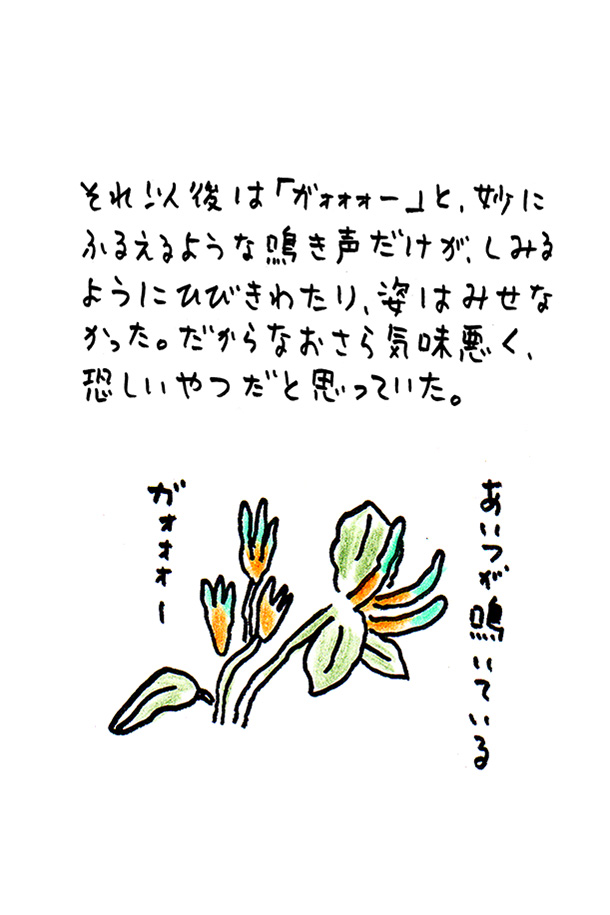 それ以後は「ガォォォー」と、妙に
ふるえるような鳴き声だけが、しみる
ようにひびきわたり、姿はみせな
かった。だからなおさら気味悪く、
恐しいやつだと思っていた。
あいつが鳴いている
ガォォォー